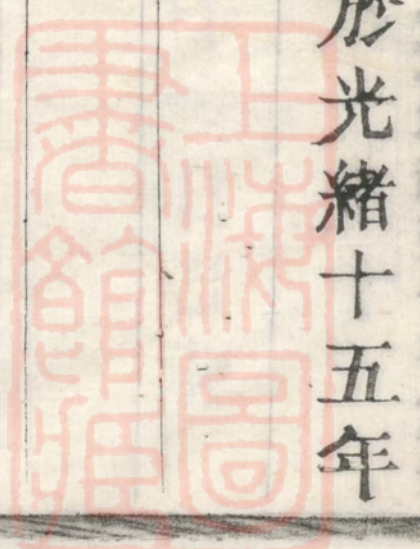 於光緒十五年
上海圖
書館藏